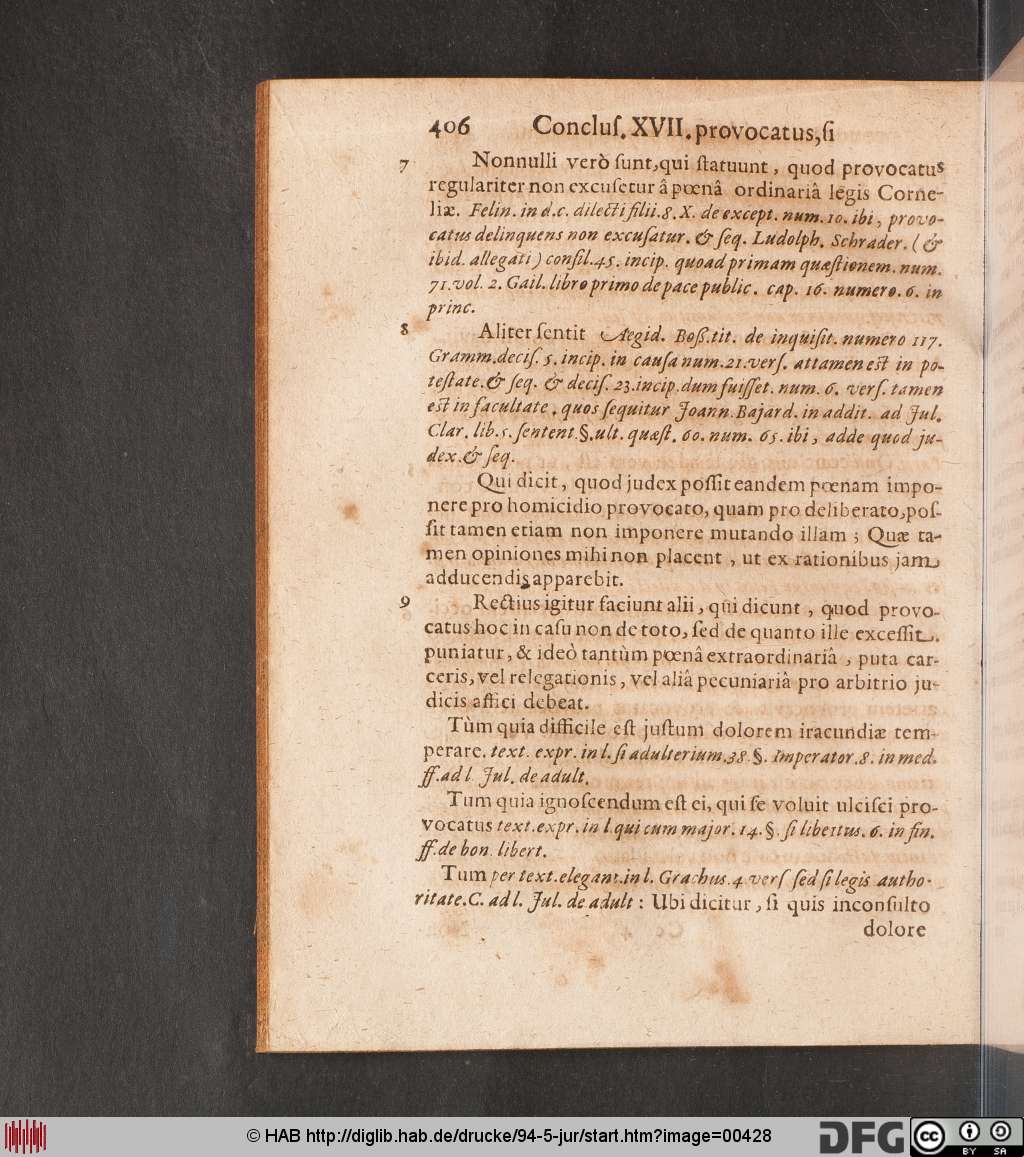 406 Concluſ. XVII. provocatus, ſi
7 Nonnulli verò ſunt, qui ſtatuunt, quod provocatus
regulariter non excuſetur â pœnâ ordinariâ legis Corne-
liæ. Felin. in d. c. dilecti filii. 8. X. de except. num. 10. ibi, provo-
catus delinquens non excuſatur. & ſeq. Ludolph. Schrader. (&
ibid. allegati) conſil. 45. incip. quoad primam quæſtionem. num.
71. vol. 2. Gail. libro primo de pace public. cap. 16. numero. 6. in
princ.
8 Aliter ſentit Aegid. Boß. tit. de inquiſit. numero 117.
Gramm. deciſ. 5. incip. in cauſa num. 21. verſ. attamen eſt in po-
teſtate. & ſeq. & deciſ. 23. incip. dum fuiſſet. num. 6. verſ. tamen
eſt in facultate. quos ſequitur Joann. Bajard. in addit. ad Jul.
Clar. lib. 5. ſentent. §. ult. quæſt. 60. num. 65. ibi, adde quod ju-
dex. & ſeq.
Qui dicit, quod judex poſſit eandem pœnam impo-
nere pro homicidio provocato, quam pro deliberato, poſ-
ſit tamen etiam non imponere mutando illam; Quæ ta-
men opiniones mihi non placent, ut ex rationibus jam
adducendis apparebit.
9 Rectius igitur faciunt alii, qui dicunt, quod provo-
catus hoc in caſu non de toto, ſed de quanto ille exceſſit.
puniatur, & ideò tantùm pœnâ extraordinariâ, puta car-
ceris, vel relegationis, vel aliâ pecuniariâ pro arbitrio ju-
dicis affici debeat.
Tùm quia difficile eſt juſtum dolorem iracundiæ tem-
perare. text. expr. in l. ſi adulterium. 38. §. Imperator. 8. in med.
ff. ad l. Jul. de adult.
Tum quia ignoſcendum eſt ei, qui ſe voluit ulciſci pro-
vocatus text. expr. in l. qui cum major. 14. §. ſi libertus. 6. in fin.
ff. de bon. libert.
Tum per text. elegant. in l. Grachus. 4 verſ ſed ſi legis autho-
ritate. C. ad l. Jul. de adult: Ubi dicitur, ſi quis inconſulto
dolore
© HAB http://diglib.hab.de/drucke/94-5-jur/start.htm?image=00428
DFG
cc
BY SA